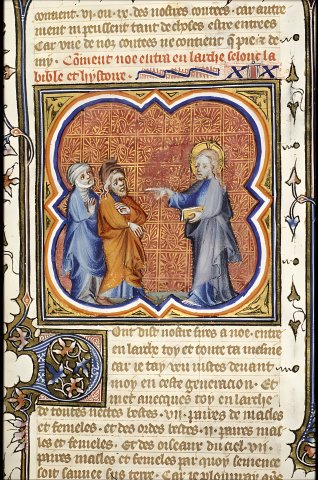 contient .vi. ou .ix. des nostres coutes. car autre
ment ni peussent tant de choses estre entrees
Car vne de noz coutes ne contient que pie & de
my. Co͂ment noe entra en larche selonc la
bible et hystoire. XIX
Dont dist nostre sires a noe. entre
en larche toy et toute ta mesnie
car ie tay veu iustes deuant
moy en ceste generacion. Et
met auecques toy en larche
de toutes nectes bestes .vii. paires de masles
et femeles. et des ordes bestes .ii. paires mas
les et femeles. Et des oiseaux du ciel .vii.
paires masles et femeles par quoy semence
soit sauuee sus terre. Car ie plouuray que